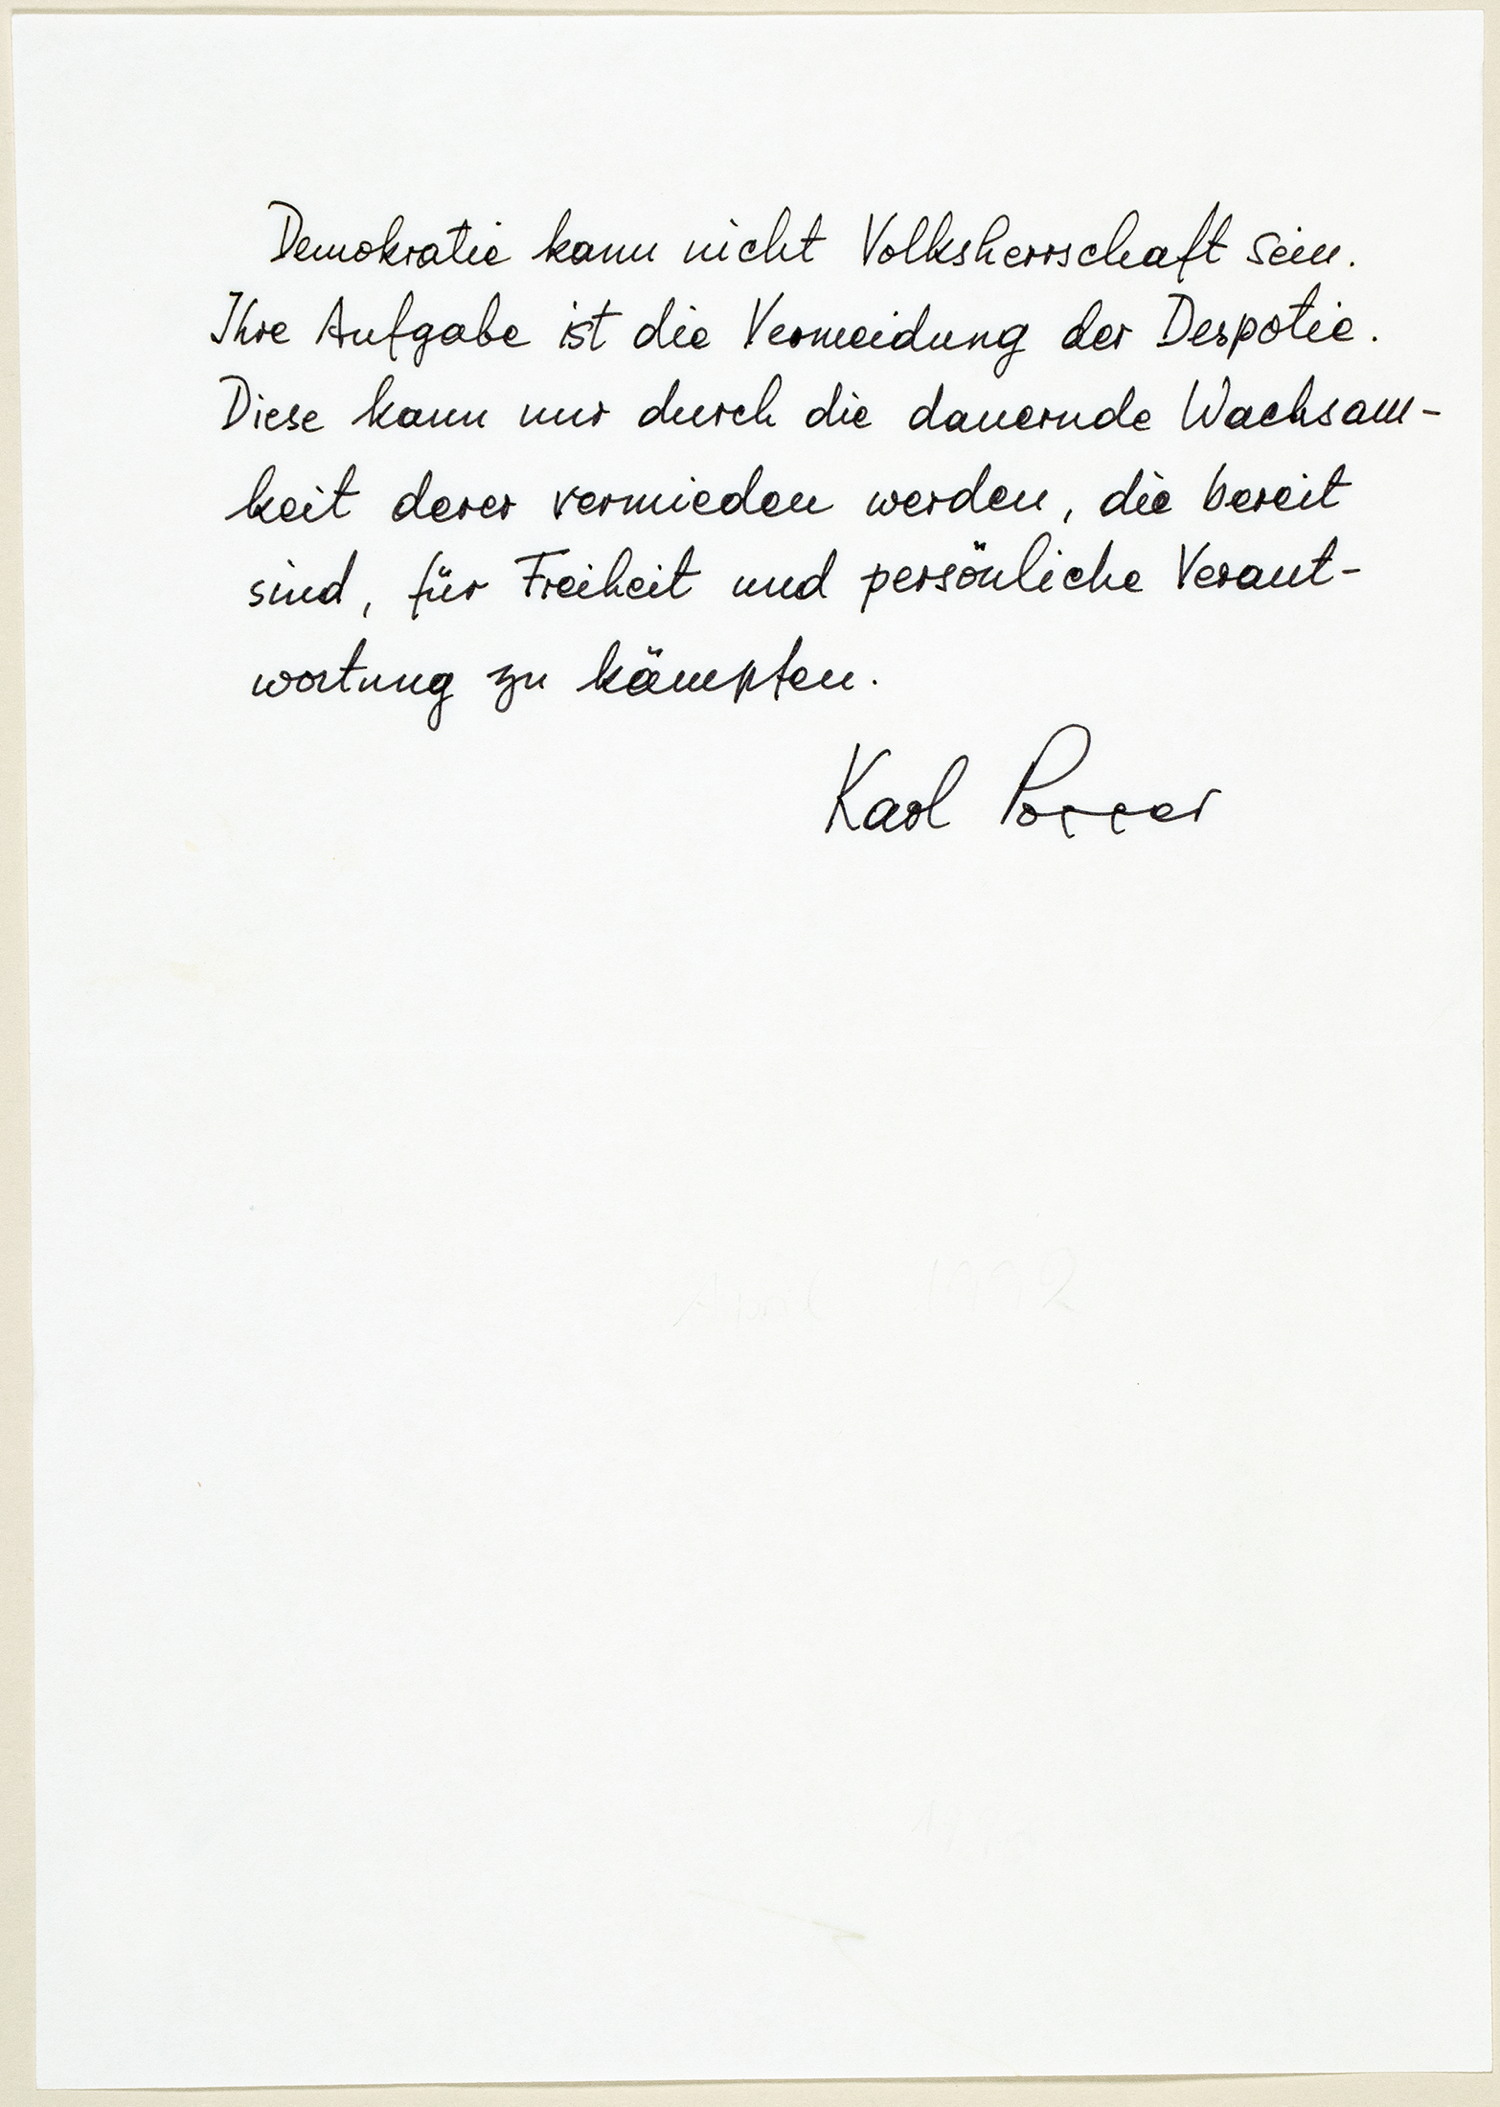 Demokratie kann nicht Volksherrschaft sein.
Ihre Aufgabe ist die Vermeidung der Despotie.
Diese kann nur durch die dauernde Wachsam-
keit derer vermieden werden, die bereit
sind, für Freiheit und persönliche Verant-
wortung zu kämpfen.
Karl Popper
April 1992